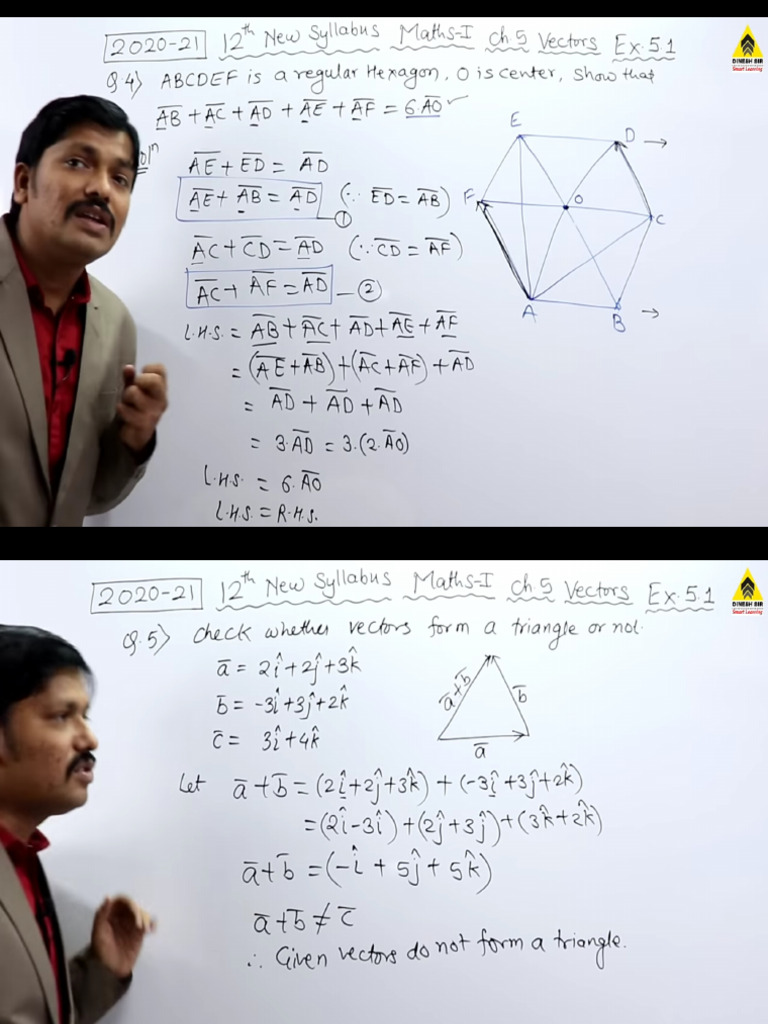 2020-21 12th New Syllabus Maths-I Ch.5 Vectors Ex.5.1
DINESH SIR
Smart Learning
Q.4) ABCDEF is a regular Hexagon, O is center, show that
A̅B̅ + A̅C̅ + A̅D̅ + A̅E̅ + A̅F̅ = 6.A̅O̅ ✓
Solⁿ
A̅E̅ + E̅D̅ = A̅D̅
A̅E̅ + A̅B̅ = A̅D̅ (∵ E̅D̅ = A̅B̅)
—①
A̅C̅ + C̅D̅ = A̅D̅ (∵ C̅D̅ = A̅F̅)
A̅C̅ + A̅F̅ = A̅D̅ —②
L.H.S. = A̅B̅ + A̅C̅ + A̅D̅ + A̅E̅ + A̅F̅
= (A̅E̅ + A̅B̅) + (A̅C̅ + A̅F̅) + A̅D̅
= A̅D̅ + A̅D̅ + A̅D̅
= 3.A̅D̅ = 3.(2.A̅O̅)
L.H.S. = 6.A̅O̅
L.H.S. = R.H.S.
E
D →
F
O
C
A
B →
2020-21 12th New Syllabus Maths-I Ch.5 Vectors Ex.5.1
DINESH SIR
Smart Learning
Q.5) Check whether vectors form a triangle or not.
a̅ = 2î + 2ĵ + 3k̂
b̅ = -3î + 3ĵ + 2k̂
c̅ = 3î + 4k̂
a̅ + b̅
b̅
a̅
Let a̅ + b̅ = (2î + 2ĵ + 3k̂) + (-3î + 3ĵ + 2k̂)
= (2î - 3î) + (2ĵ + 3ĵ) + (3k̂ + 2k̂)
a̅ + b̅ = (-î + 5ĵ + 5k̂)
a̅ + b̅ ≠ c̅
∴ Given vectors do not form a triangle.